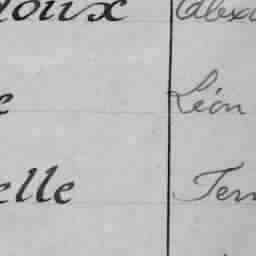 doux Alexa
e Léon
elle Fern